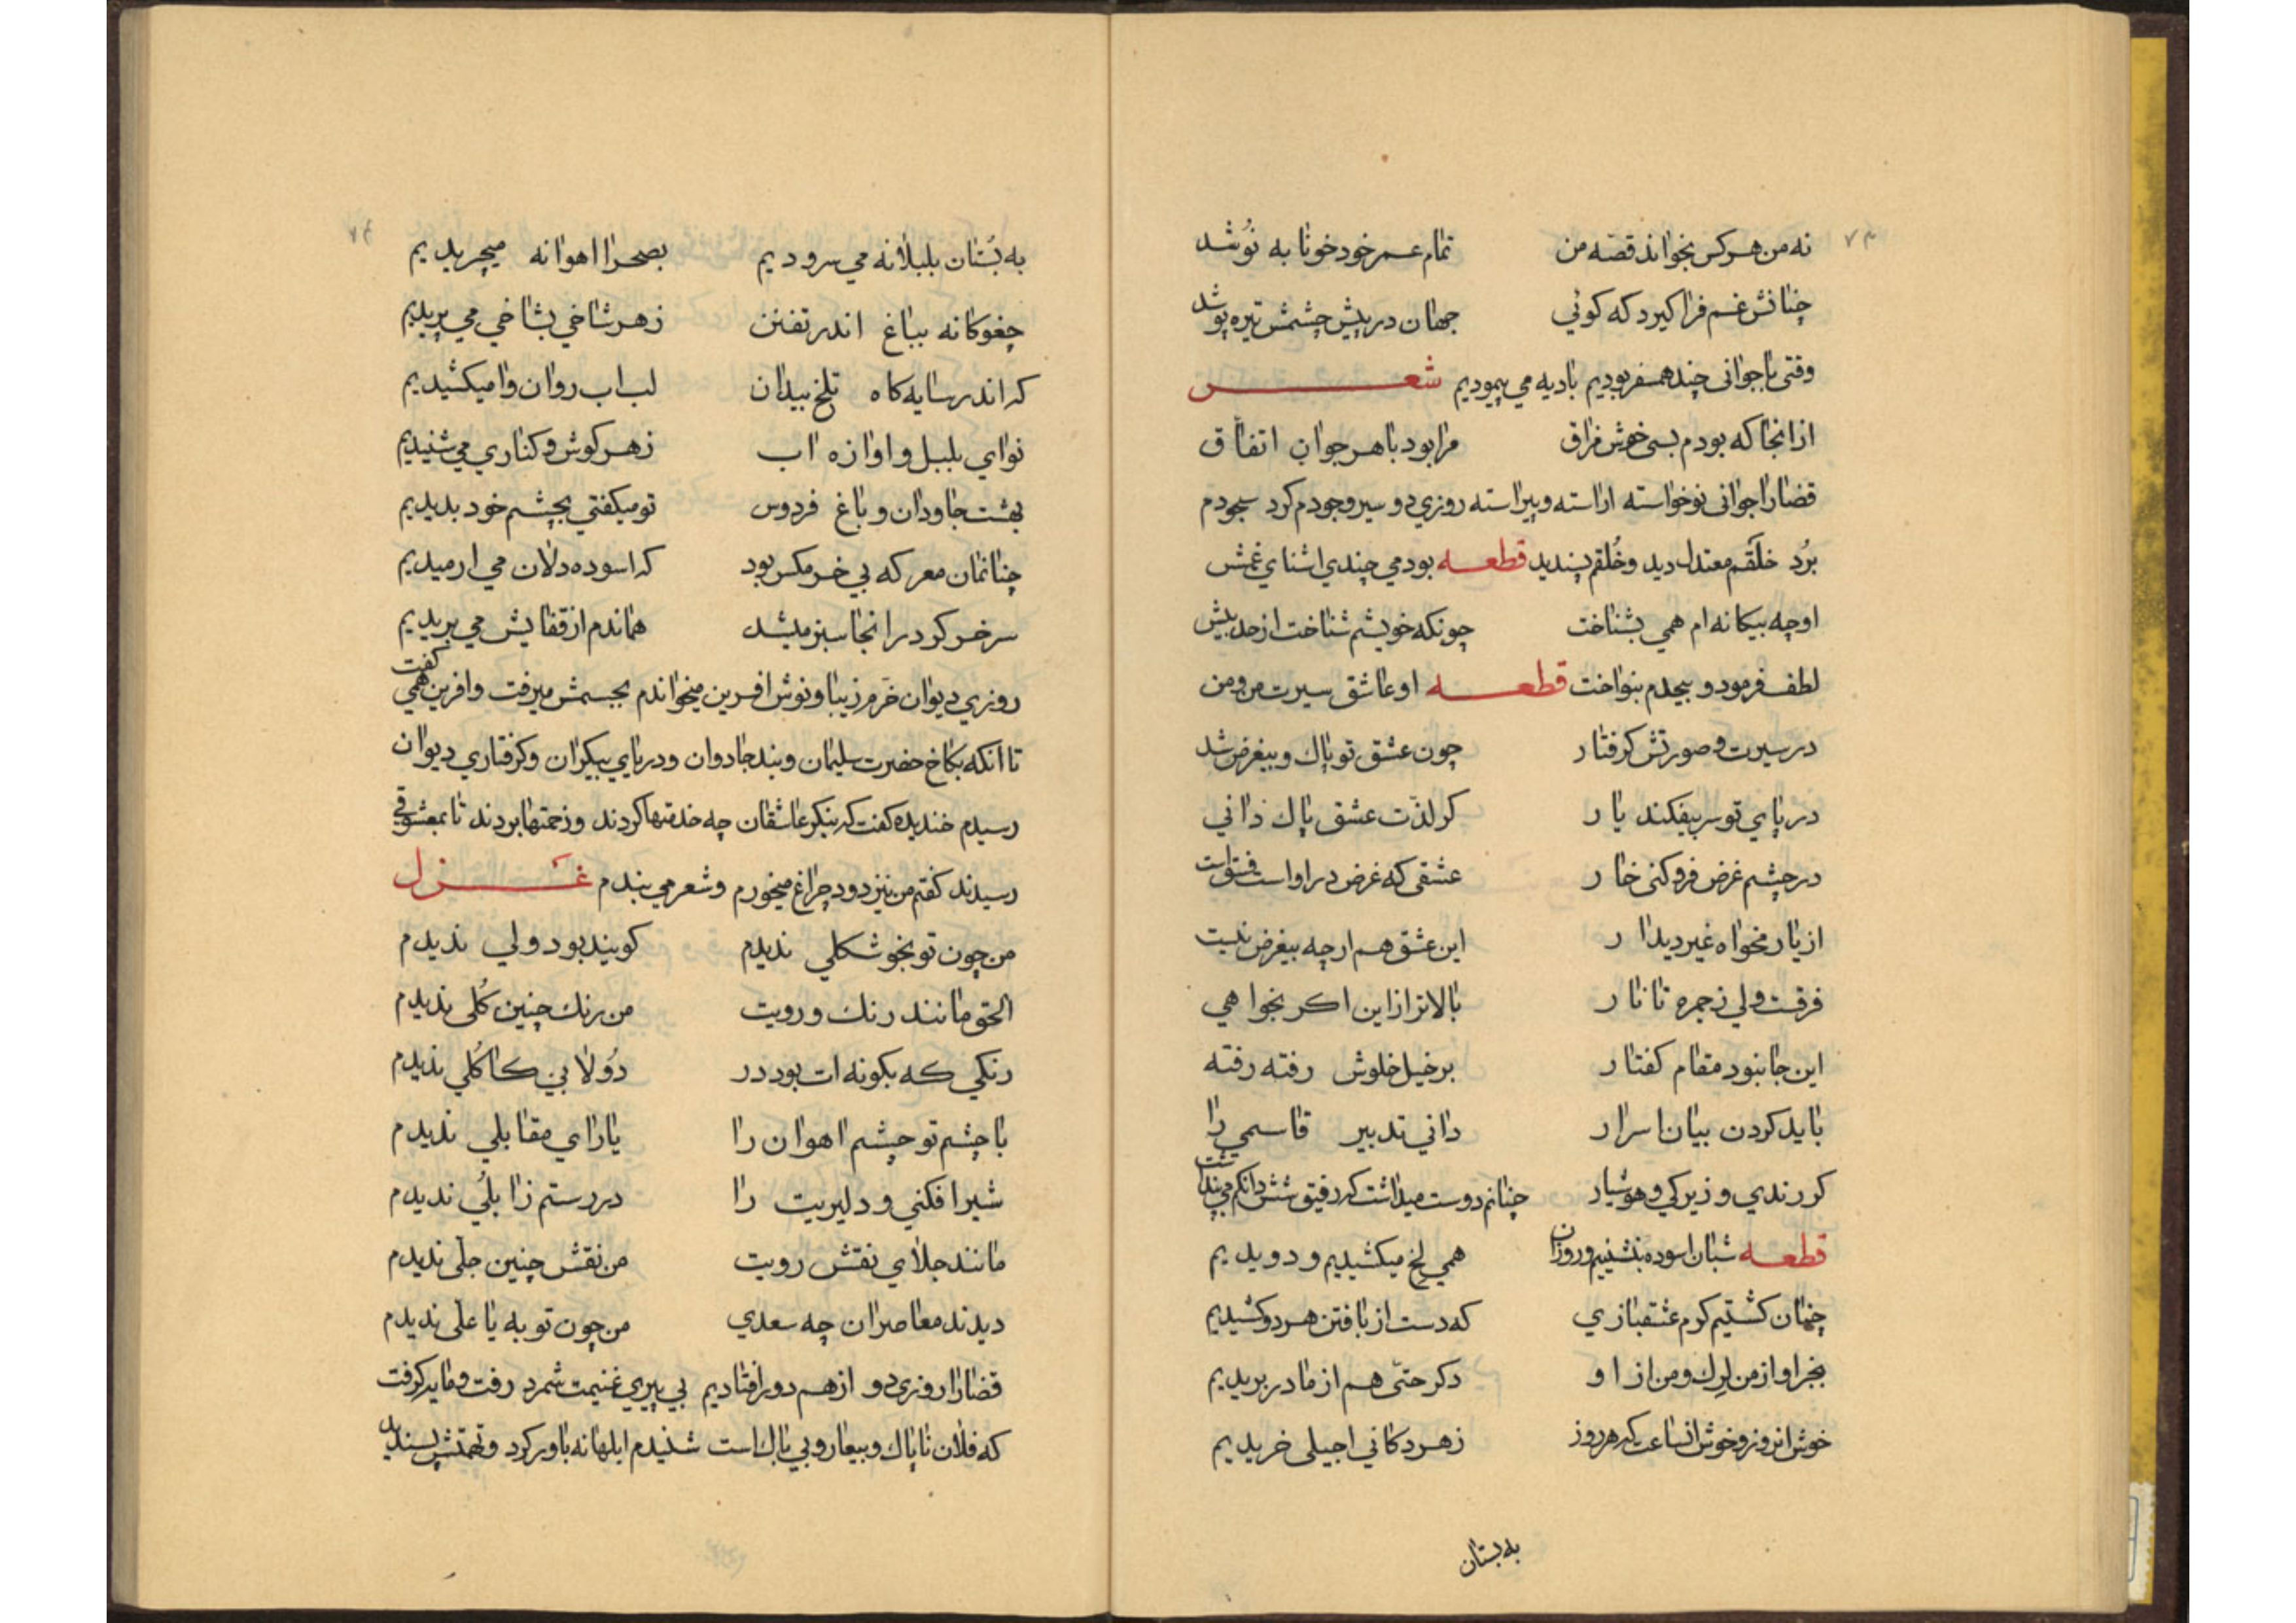 ۷۳
نه من هر کس بخواند قصّه من تمام عمر خود خونا به نوشد
چنانش غم فرا کیرد که کوئی جهان در پیش چشمش تیره پوشد
وقتی با جوانی چند همسفر بودیم بادیه می پیمودیم شعر
از انجا که بودم بسی خوش مزاق مرا بود با هر جوان اتفاق
قضا را جوانی نوخواسته اراسته و پیراسته روزی دو سیر وجودم کرد سجودم
برُد خلقَم معتدل دید و خُلقم پسندید قطعه بودمی چندی اشنای غمش
او چه بیکانه ام همی بشناخت چونکه خویشم شناخت از حد بیش
لطف فرمود و بیحدم بنواخت قطعه او عاشق سیرت من و من
در سیرت و صورتش کرفتار چون عشق تو پاك و بیغرض شد
در پای تو سر بیفکند یار کر لذّت عشق پاك دانی
در چشم غرض فرو کنی خار عشقی که غرض در او است فسق است
از یار مخواه غیر دیدار این عشق هم ارچه بیغرض نیست
فرقست ولی ز جمره تا نار بالاتر از این اکر بخواهی
این جا نبود مقام کفتار بر خیل خلوش رفته رفته
باید کردن بیان اسرار دانی تدبیر قاسمی را
کر رندی و زیرکی و هوشیار چنانم دوست میداشت که رفیق شش دانکم می پنداشت
قطعه شبان اسوده ننشینیم و روزان همی لخ میکشیدیم و دویدیم
چنان کشتیم کرم عشقبازی که دست از بافتن هر دو کشیدیم
بجز او از من لرك و من از او دکر حتّی هم از مادر بریدیم
خوش انروز و خوش انساعت که هر روز ز هر دکانی اجیلی خریدیم
به بستان
۷۴
به بُستان بلبلانه می سرودیم بصحرا اهوانه میچریدیم
چغوکانه بباغ اندر تفنن ز هر شاخی بشاخی می پریدیم
که اندر سایه کاه تلخ بیدان لب اب روان وا میکشیدیم
نوای بلبل و اوازه اب ز هر کوش و کناری می شنیدیم
بهشت جاودان و باغ فردوس تو میکفتی بچشم خود بدیدیم
چنانمان معرکه بی خر مکس بود که اسوده دلان می ارمیدیم
سر خر کر در انجا سبز میشد هماندم از قفایش می بریدیم
روزی دیوان خرّم زیبا و نوش افرین میخواندم بجسمش میرفت و افرین همی کفت
تا انکه بکاخ حضرت سلیمان و بند جادوان و دریای بیکران و کرفتاری دیوان
رسیدم خندیده کفت که بنکر عاشقان چه خدمتها کردند و زحمتها بردند تا بمعشوقی
رسیدند کفتم من نیز دود چراغ میخورم و شعر می بندم غزل
من چون تو بخوشکلی ندیدم کویند بود ولی ندیدم
الحق مانند رنك و رویت من رنك چنین کُلی ندیدم
رنکی که بکونه ات بود در دُولابی کاکُلی ندیدم
با چشم تو چشم اهوان را یارای مقابلی ندیدم
شیر افکنی و دلیریت را در رستم زابلُی ندیدم
مانند جلای نقش رویت من نقش چنین جلی ندیدم
دیدند معاصران چه سعدی من چون تو به یا علی ندیدم
قضا را روزی دو از هم دور افتادیم بی پیری غنیمت شمرد رفت و مایه کرفت
که فلان ناپاك و بیعار و بی باك است شنیدم ابلهانه باور کرد و تهمتش پسندید